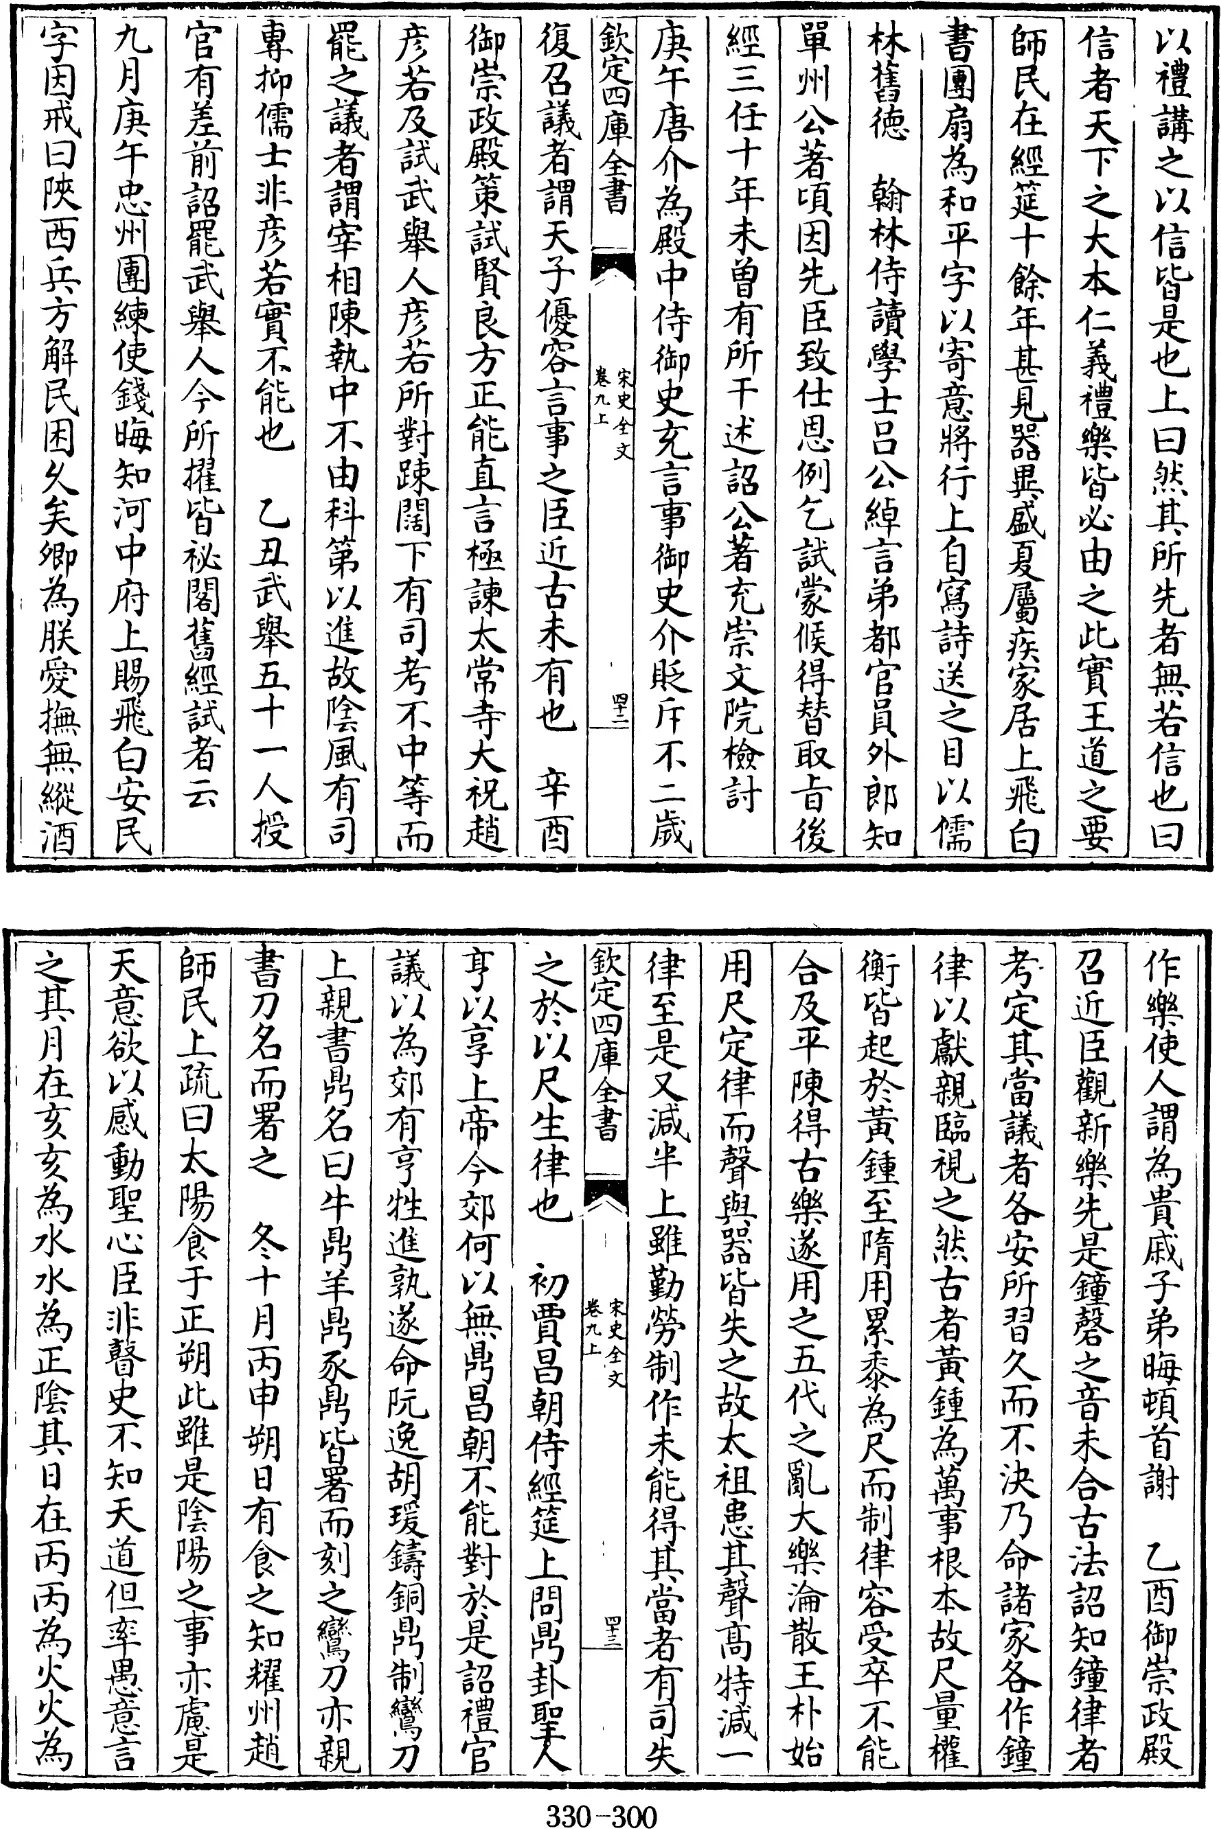 以禮講之以信皆是也上曰然其所先者無若信也曰
信者天下之大本仁義禮樂皆必由之此實王道之要
師民在經筵十餘年甚見器異盛夏屬疾家居上飛白
書團扇為和平字以寄意將行上自寫詩送之目以儒
林舊德　翰林侍讀學士呂公綽言弟都官員外郎知
單州公著頃因先臣致仕恩例乞試蒙候得替取旨後
經三任十年未曽有所干述詔公著充崇文院檢討
庚午唐介為殿中侍御史充言事御史介貶斥不二歲
欽定四庫全書
宋史全文
卷九上
四十二
復召議者謂天子優容言事之臣近古未有也　辛酉
御崇政殿策試賢良方正能直言極諫太常寺大祝趙
彦若及試武舉人彦若所對踈闊下有司考不中等而
罷之議者謂宰相陳執中不由科第以進故陰風有司
專抑儒士非彦若實不能也　乙丑武舉五十一人授
官有差前詔罷武舉人今所擢皆祕閣舊經試者云
九月庚午忠州團練使錢晦知河中府上賜飛白安民
字因戒曰陜西兵方解民困久矣卿為朕愛撫無縱酒
作樂使人謂為貴戚子弟晦頓首謝　乙酉御崇政殿
召近臣觀新樂先是鐘磬之音未合古法詔知鐘律者
考定其當議者各安所習久而不決乃命諸家各作鐘
律以獻親臨視之然古者黃鍾為萬事根本故尺量權
衡皆起於黃鍾至隋用累黍為尺而制律容受卒不能
合及平陳得古樂遂用之五代之亂大樂淪散王朴始
用尺定律而聲與器皆失之故太祖患其聲髙特減一
律至是又減半上雖勤勞制作未能得其當者有司失
欽定四庫全書
宋史全文
卷九上
四十三
之於以尺生律也　初賈昌朝侍經筵上問鼎卦聖人
亨以享上帝今郊何以無鼎昌朝不能對於是詔禮官
議以為郊有亨牲進孰遂命阮逸胡瑗鑄銅鼎制鸞刀
上親書鼎名曰牛鼎羊鼎豕鼎皆署而刻之鸞刀亦親
書刀名而署之　冬十月丙申朔日有食之知耀州趙
師民上疏曰太陽食于正朔此雖是陰陽之事亦慮是
天意欲以感動聖心臣非瞽史不知天道但率愚意言
之其月在亥亥為水水為正陰其日在丙丙為火火為
330-300